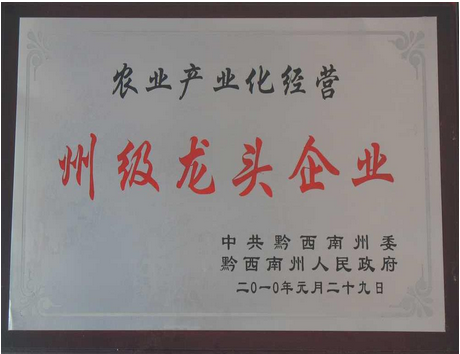 农业产业化经营
州级龙头企业
中共黔西南州委
黔西南州人民政府
二〇一〇年元月二十九日